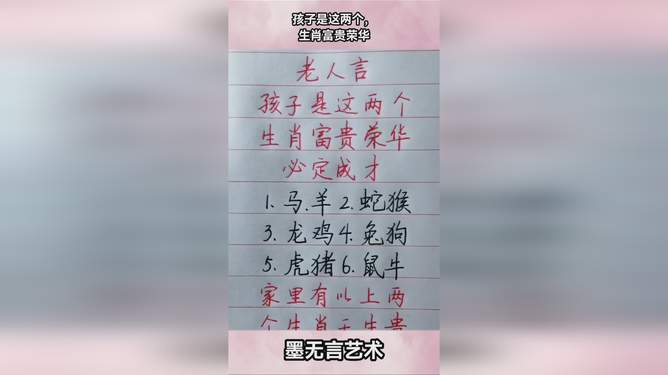 孩子是这两个，
生肖富贵荣华
老人言
孩子是这两个
生肖富贵荣华
必定成才
1.马.羊2.蛇猴
3.龙鸡4.兔狗
5.虎猪6.鼠牛
家里有以上两
个生肖天生贵
墨无言艺术